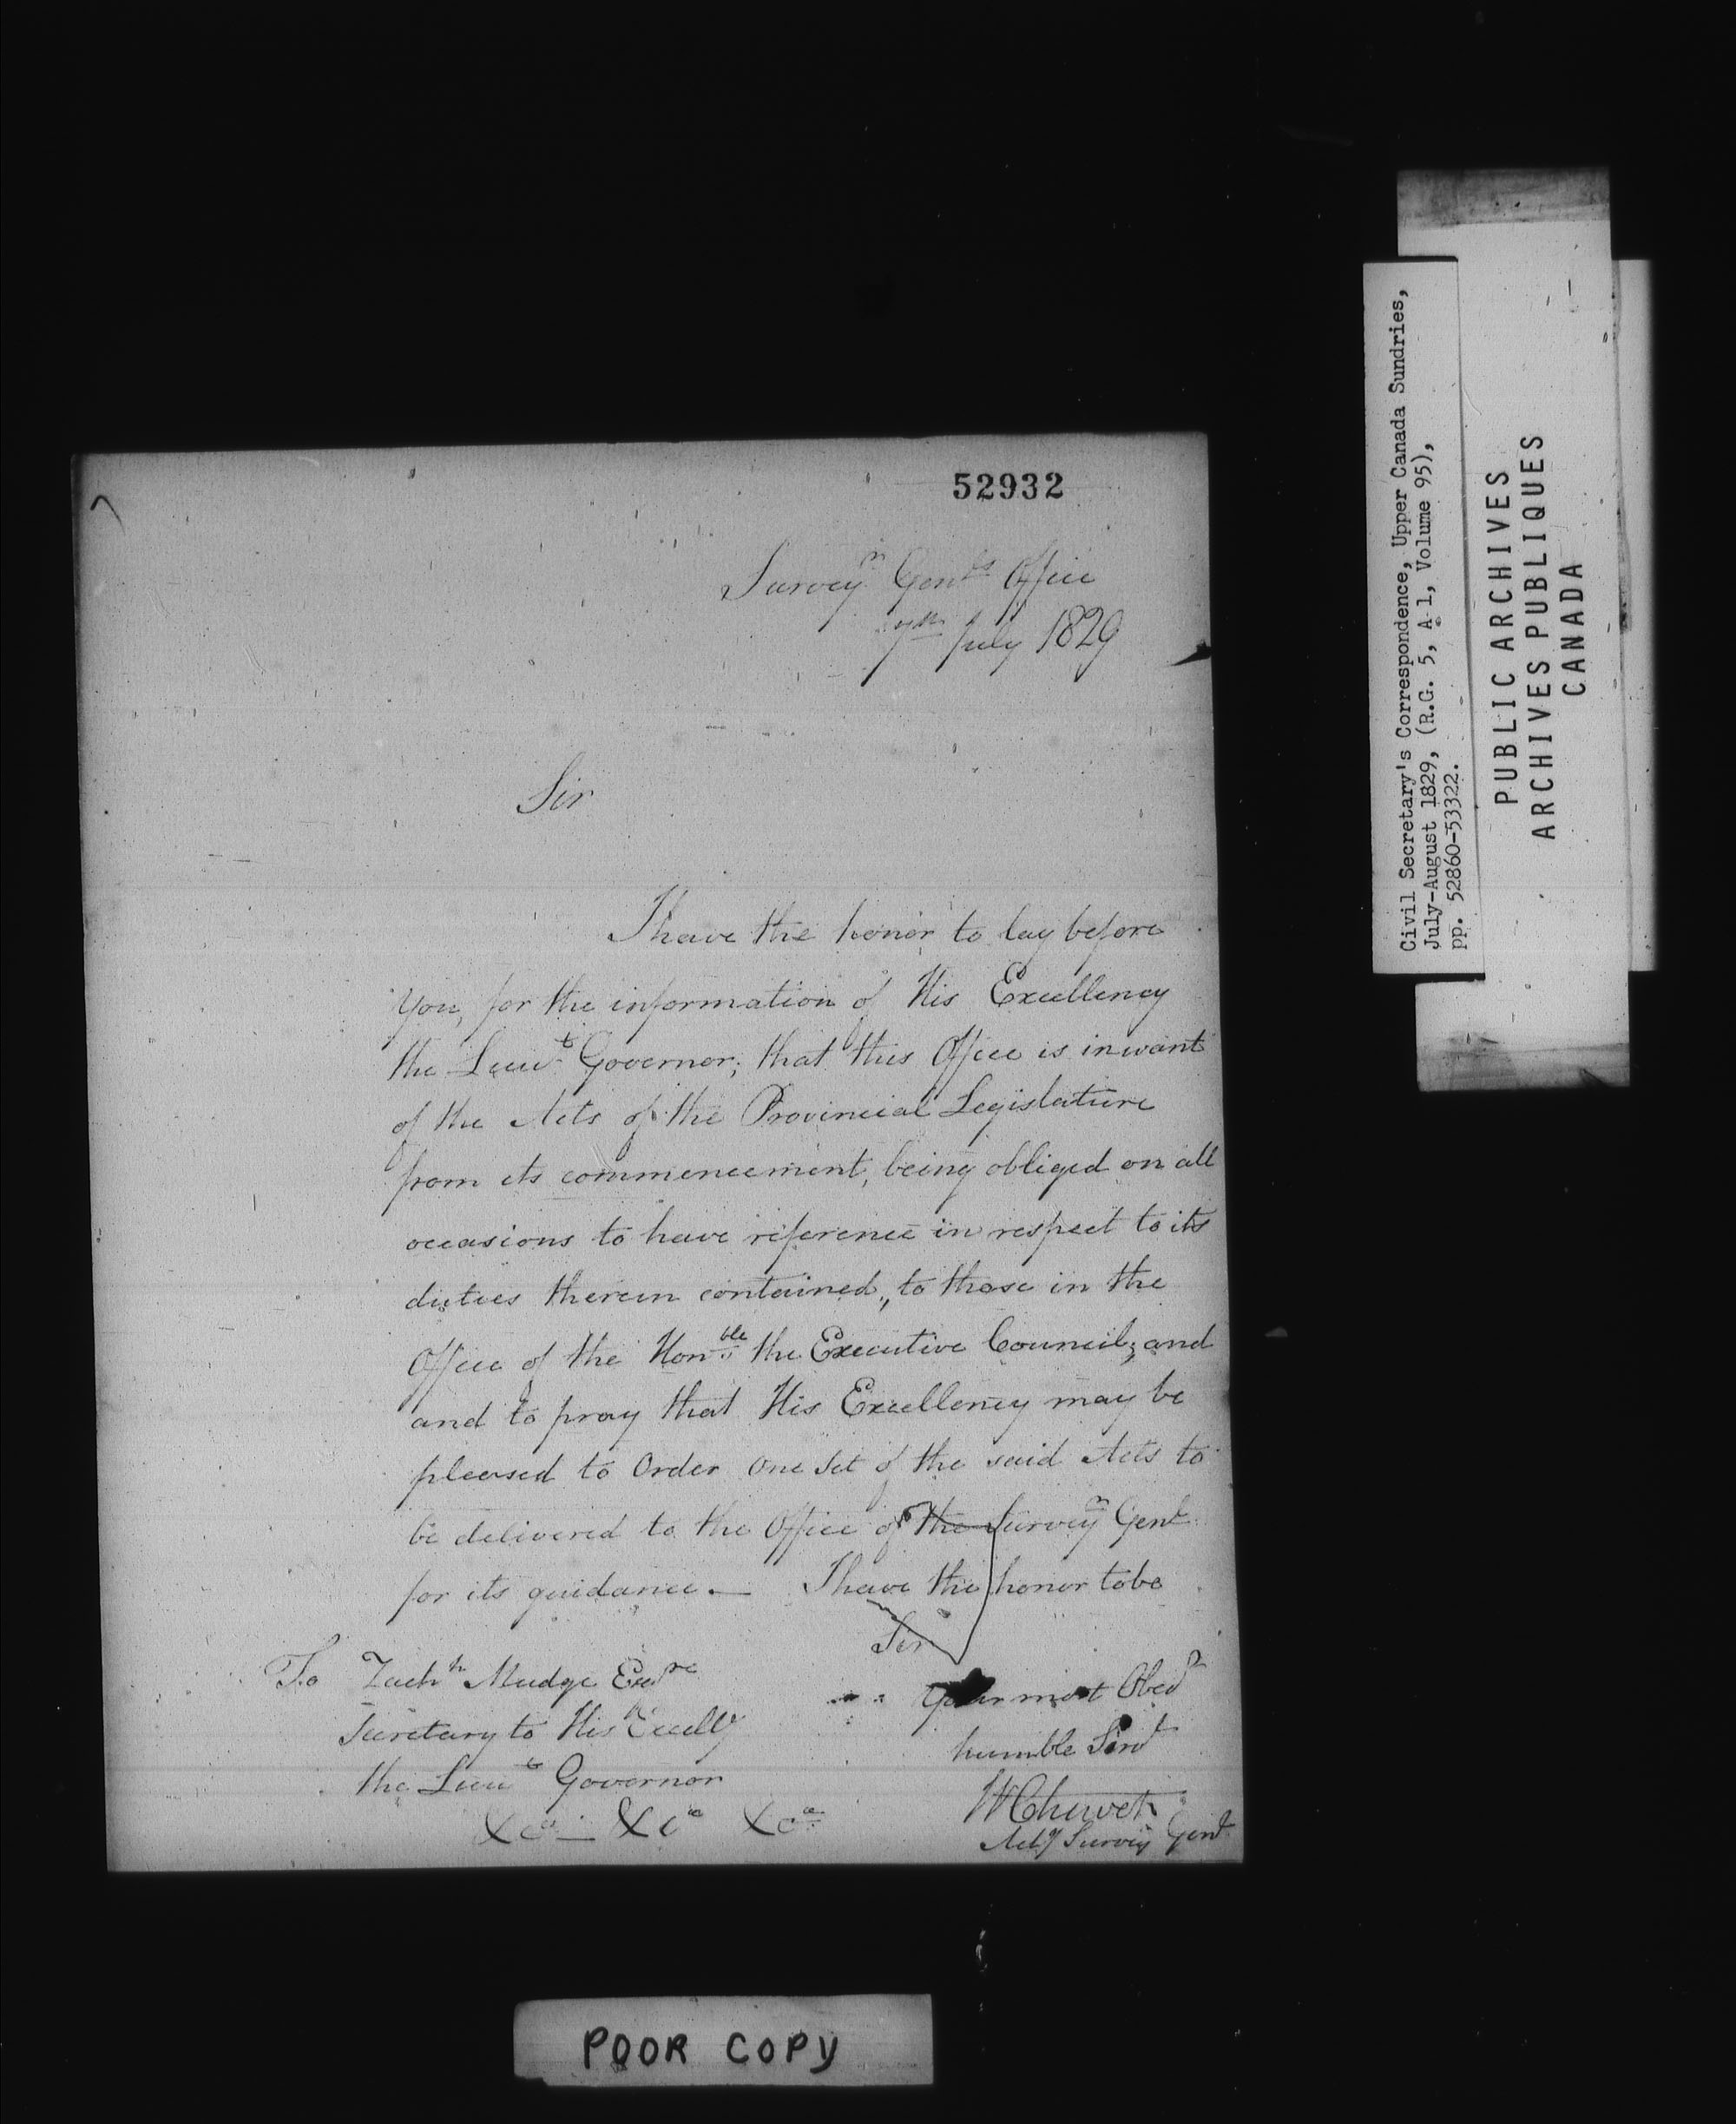 52932
Survey^r Gen^ls Office
7^th July 1829
Sir
I have the honor to lay before
you, for the information of His Excellency
the Lieu^t Governor; that this Office is in want
of the Acts of the Provincial Legislature
from its commencement, being obliged on all
occasions to have reference in respect to its
duties therein contained, to those in the
Office of the Hon^ble the Executive Council; and
and to pray that His Excellency may be
pleased to Order one Set of the said Acts to
be delivered to the Office of the Survey^r Gen^l
for its guidance. — I have the honor to be
Sir
Your most Obed^t
humble Serv^t
W Chewett
Act^g Survey^r Gen^l
To Zach^h Mudge Esq^re
Secretary to His Excell^y
the Lieu^t Governor
&c^a &c^a &c^a
Civil Secretary's Correspondence, Upper Canada Sundries,
July-August 1829, (R.G. 5, A 1, Volume 95),
pp. 52860-53322.
PUBLIC ARCHIVES
ARCHIVES PUBLIQUES
CANADA
POOR COPY